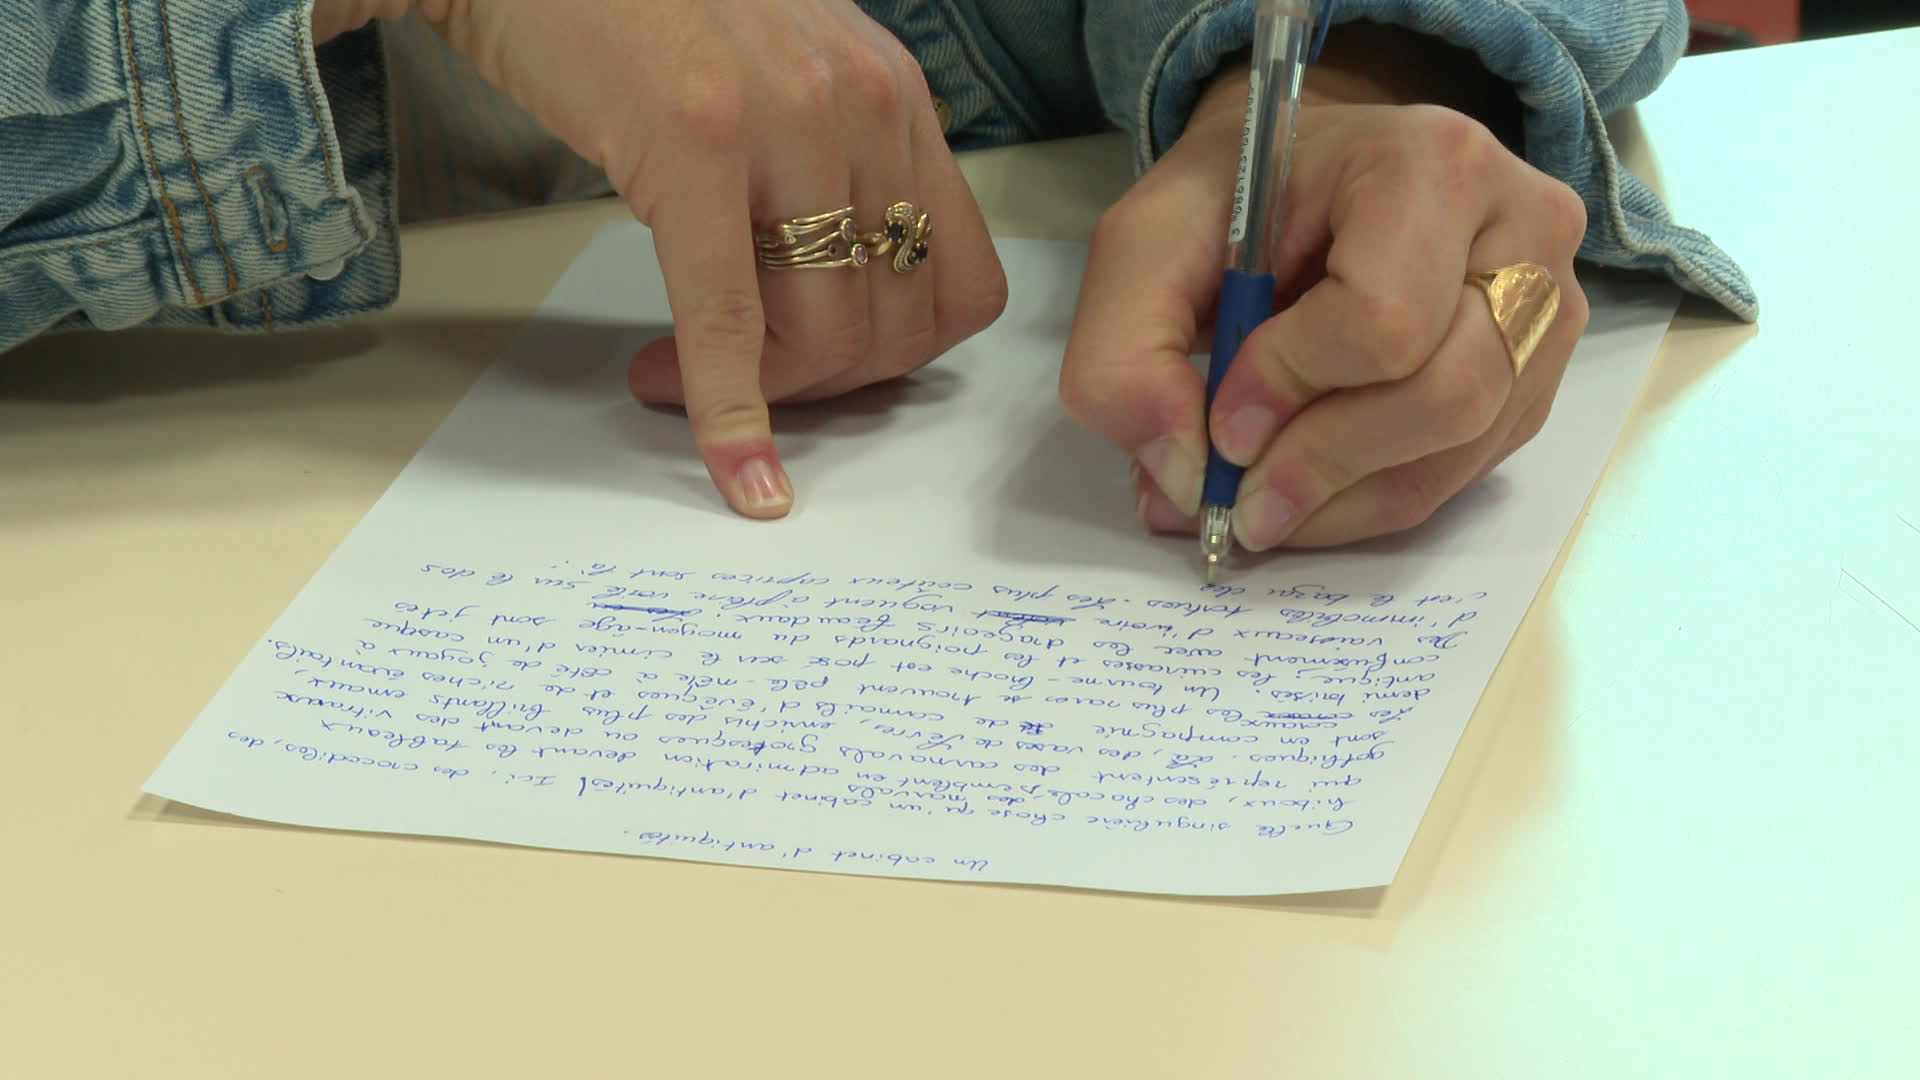 Un cabinet d'antiquités.
Quelle singulière chose qu'un cabinet d'antiquités! Ici, des crocodiles, des
hiboux, des chacals, des narvals semblent en admiration devant les tableaux
qui représentent des carnavals grotesques ou devant des vitraux
gothiques. Là, des vases de Sèvres, enrichis des plus brillants émaux,
sont en compagnie de camails d'évêques et de riches éventails.
Les coraux les plus rares se trouvent pêle-mêle à côté de joyaux à
demi brisés. Un tourne-broche est posé sur le cimier d'un casque
antique; les cuirasses et les poignards du moyen-âge sont jetés
confusément avec les drageoirs féaudaux;
Des vaisseaux d'ivoire voguent à pleine voile sur le dos
d'immobiles tortues. Les plus coûteux caprices sont là:
c'est le bazar des